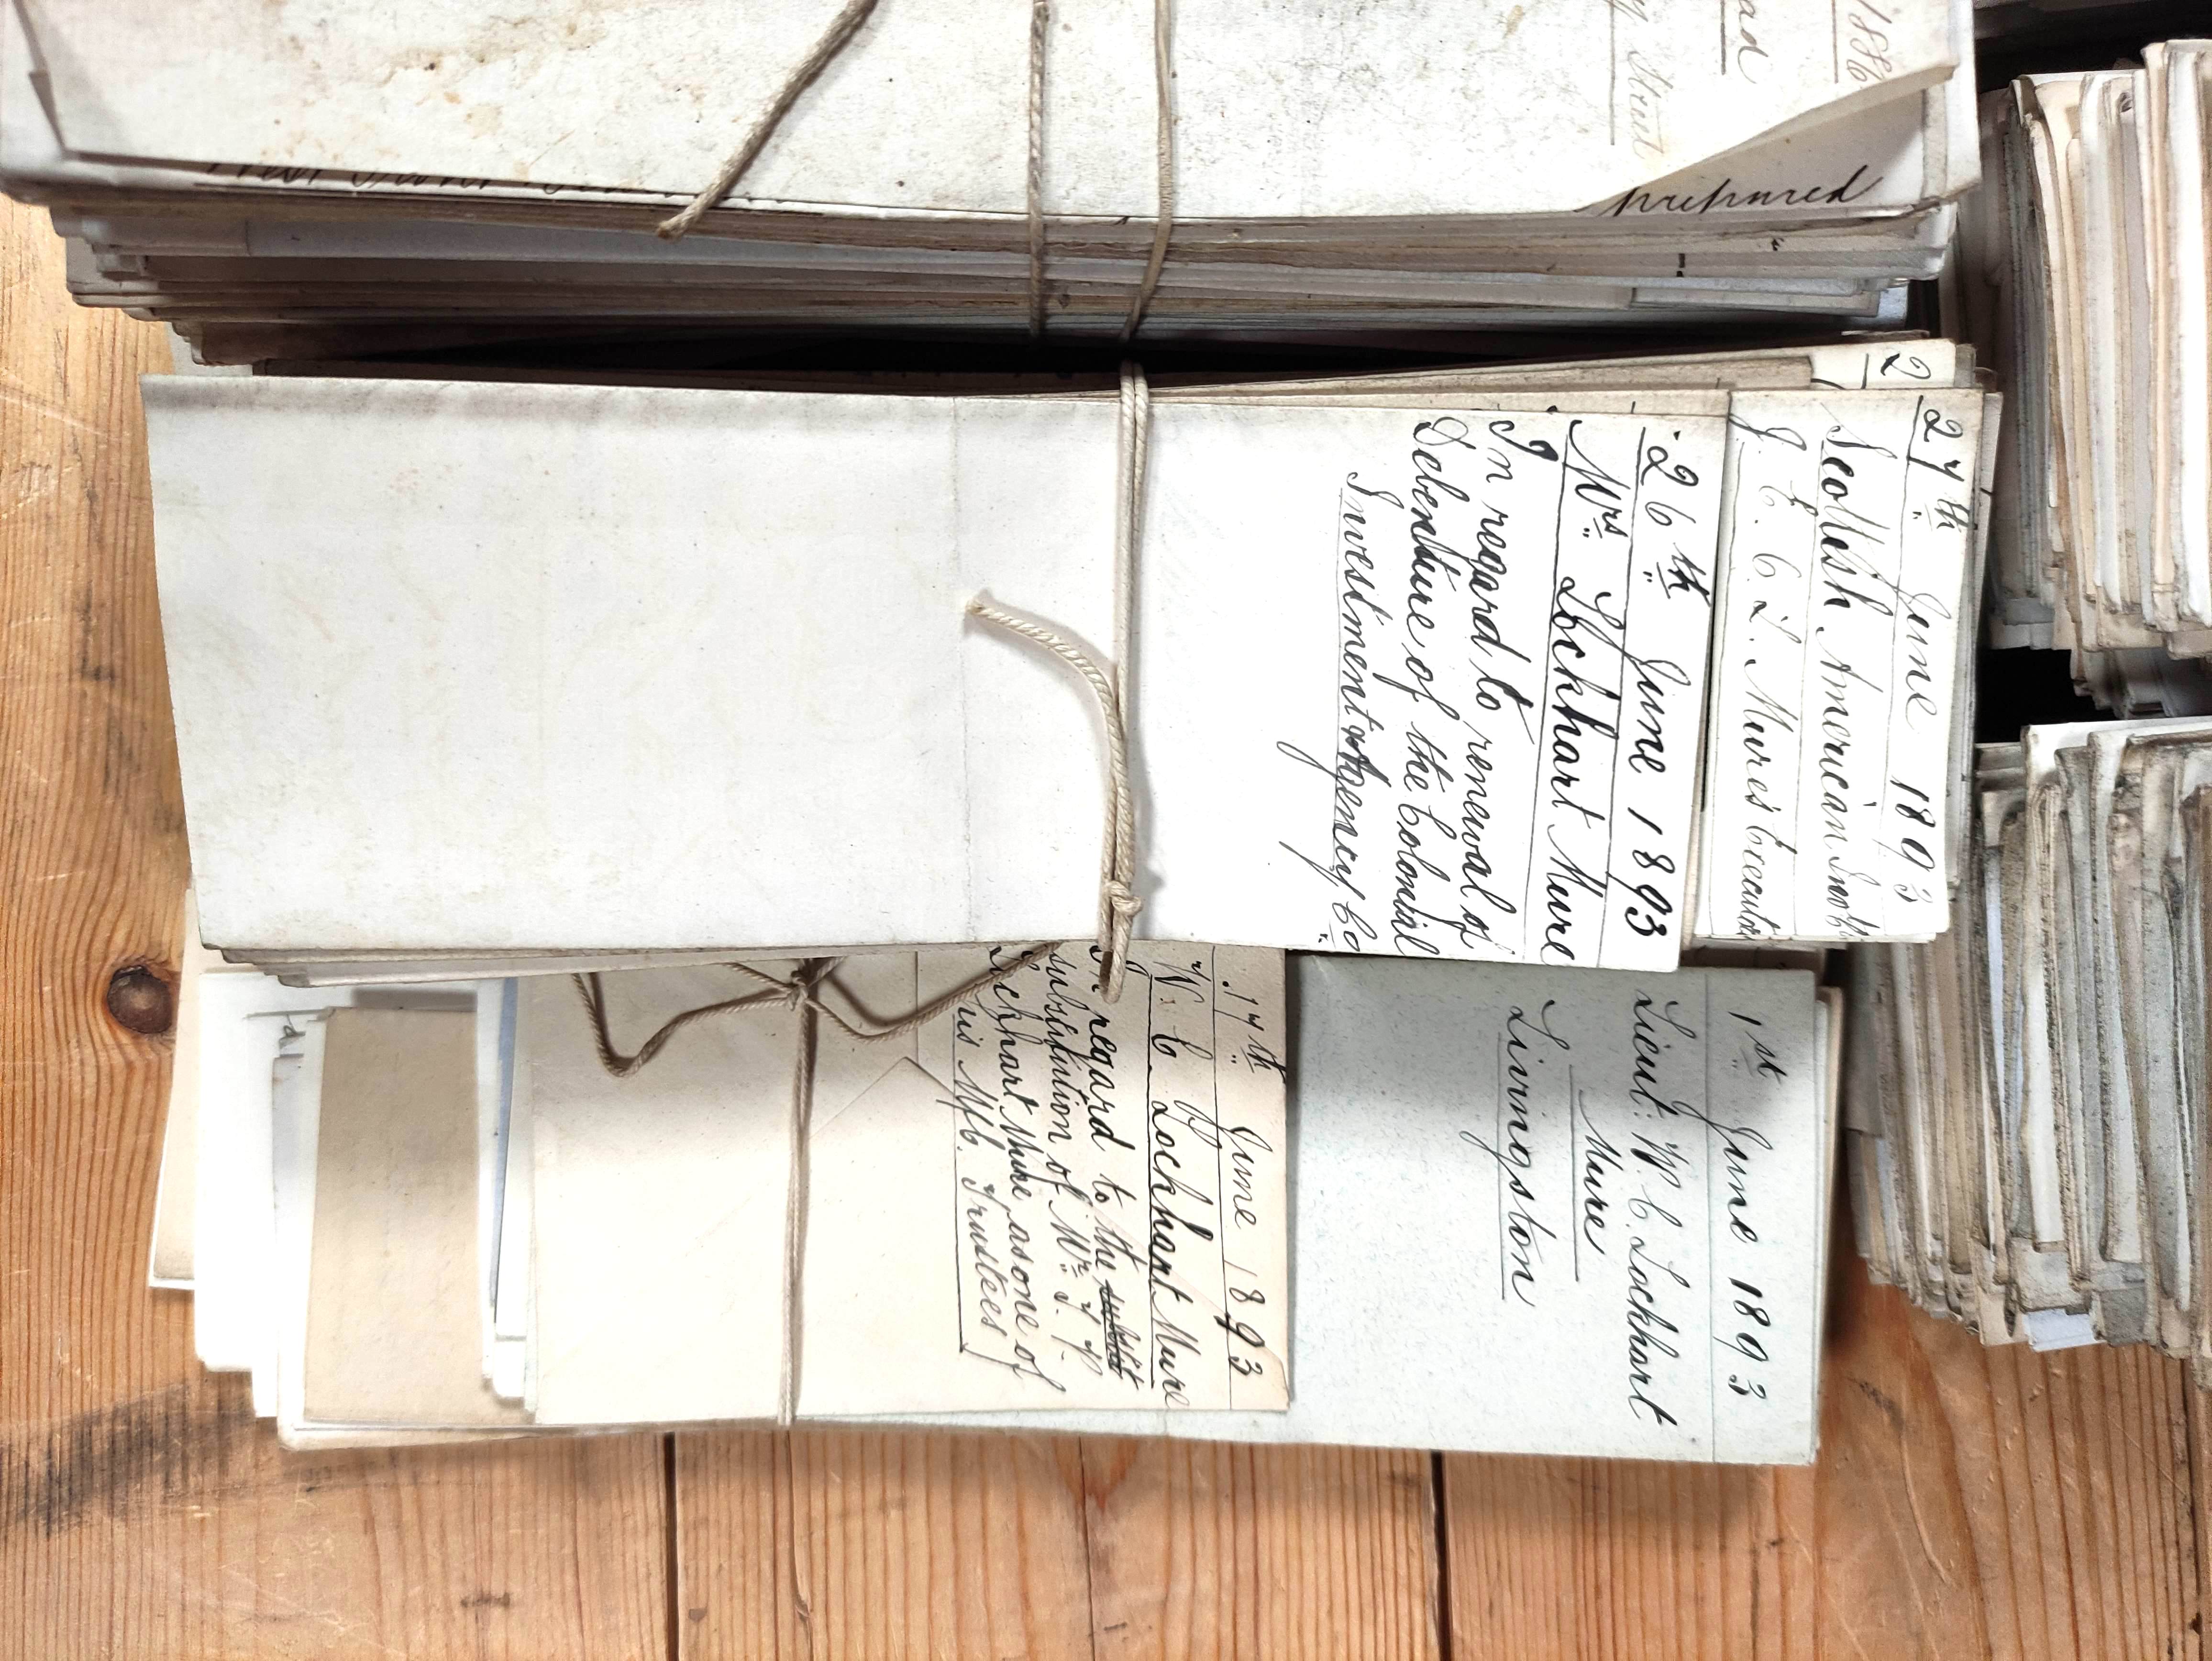 1886
ad
Street
prepared
27th June 1893
Scottish American Invt
J. E. C. L. Mure's Executors
2
26th June 1893
Mrs. Lockhart Mure
In regard to renewal of
Debenture of the Colonial
Investment & Agency Co.
17th June 1893
W. C. Lockhart Mure
In regard to the
substitution of Mr.
Lockhart Mure as one of
his Mc. Trustees
1st June 1893
Lieut. W. C. Lockhart
Mure
Livingston